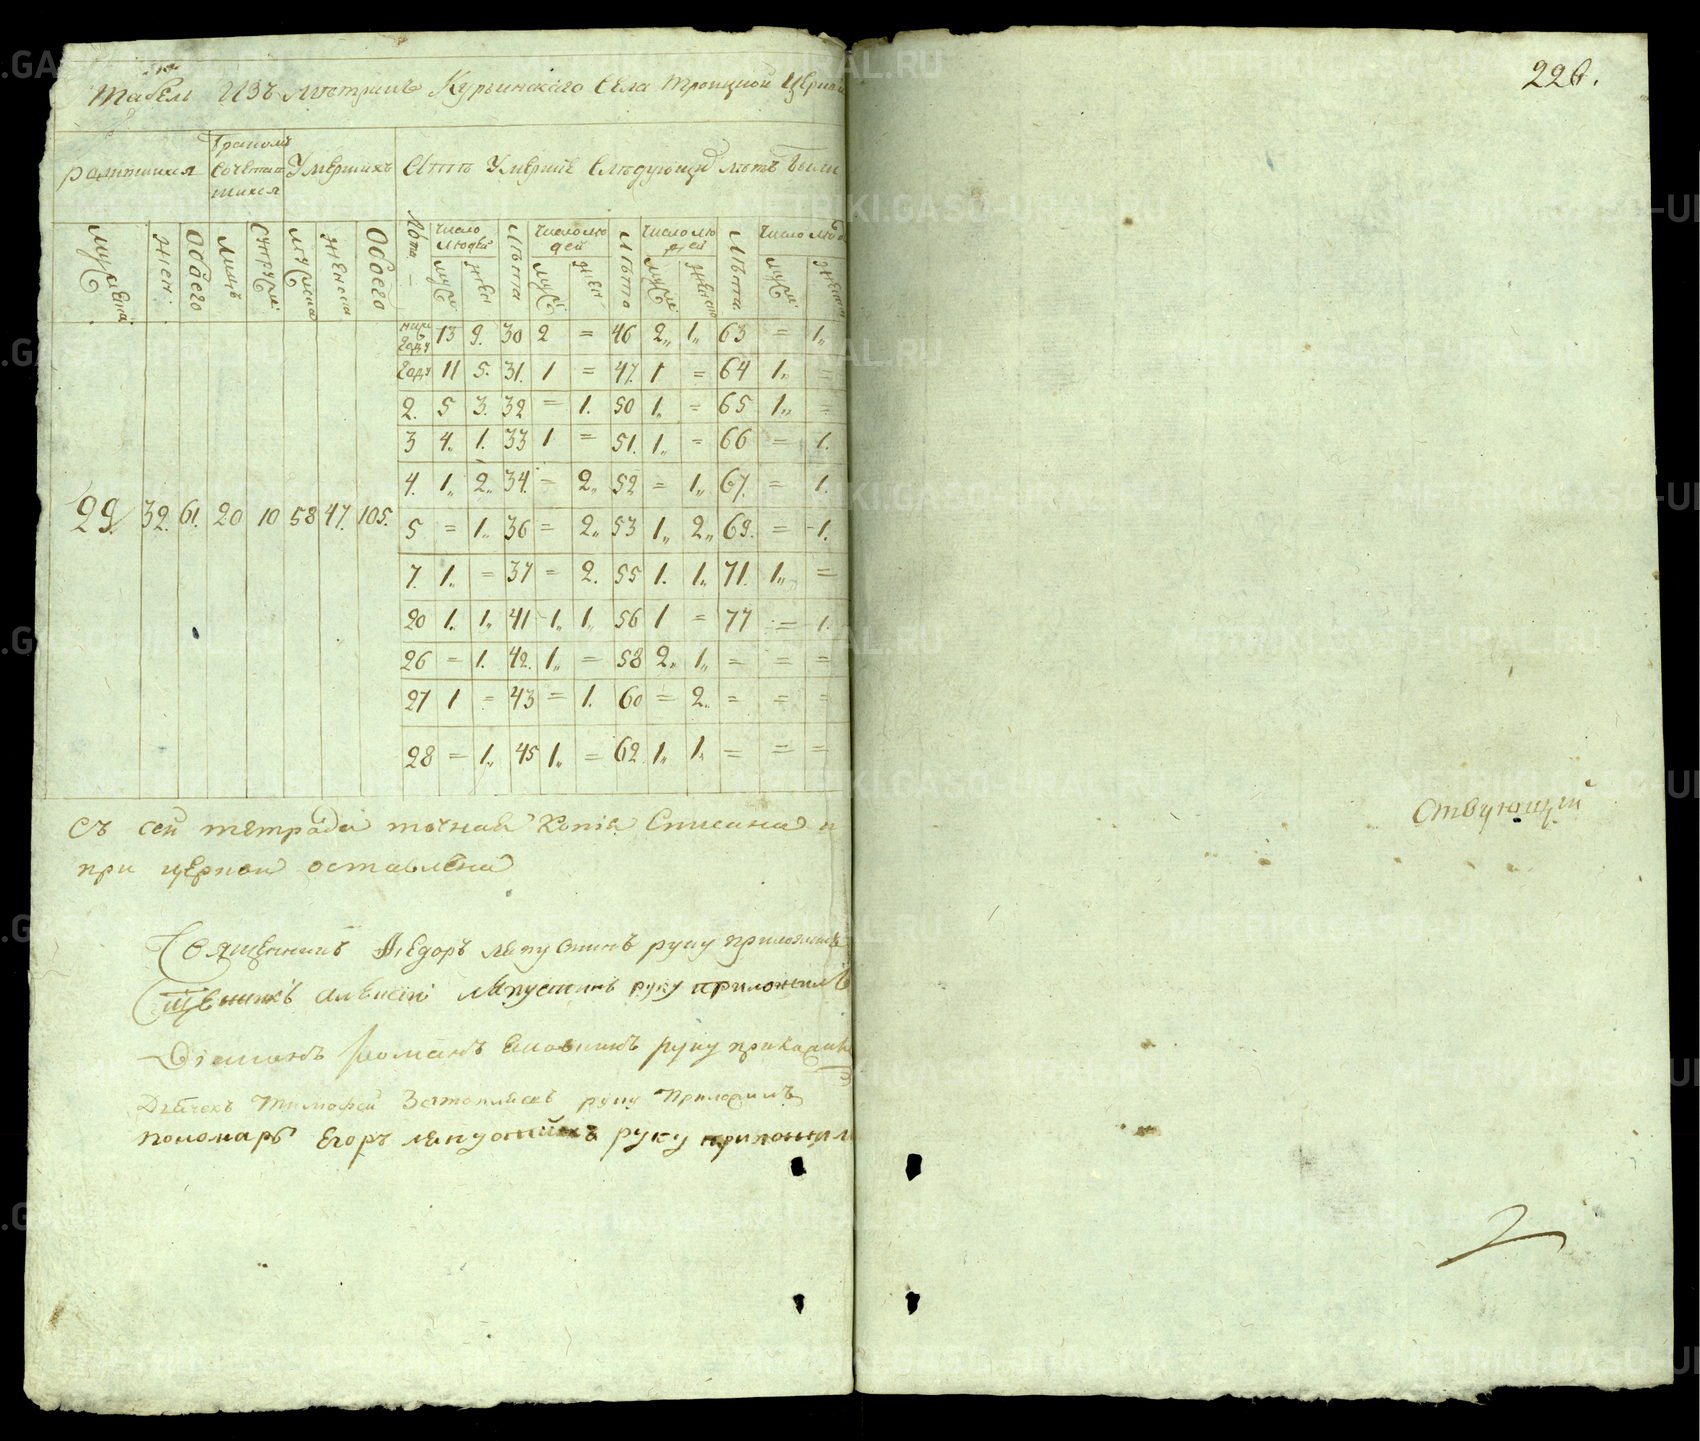 Табель изъ метрикъ Курьинскаго села Троицкой церкви
родившихся
бракомъ
сочетав
шихся
Умершихъ
А тѣ умершiе следующи летъ были
мужеска
жен:
обоего
лицъ
супруж:
мужеска
женска
обоего
Лѣта
число
людей
Лѣта
число лю
дей
Лѣта
число лю
дей
Лѣта
число люд
муж:
жен
муж:
жен
муж:
женск
муж:
женск
ниже
году 13 9. 30 2 = 46 2„ 1„ 63 = 1„
году 11 5. 31. 1 = 47. 1 = 64 1„ =
2. 5 3. 32 = 1. 50 1„ = 65 1„ =
3 4. 1. 33 1 = 51. 1„ = 66 = 1.
4. 1„ 2„ 34. = 2„ 52 = 1„ 67. = 1.
29. 32. 61. 20 10 58 47. 105.
5 = 1„ 36 = 2„ 53 1„ 2„ 69. = 1.
7. 1„ = 37 = 2. 55 1. 1„ 71. 1„ =
20 1. 1„ 41 1„ 1„ 56 1 = 77 = 1.
26 = 1. 42. 1„ = 58 2„ 1„ = = =
27 1 = 43 = 1. 60 = 2„ = = =
28 = 1„ 45 1„ = 62. 1„ 1„ = = =
Съ сей тетради точная копiя списана и
при церкви оставлена
Священникъ Ѳедоръ Лепустинъ руку приложилъ
Священикъ Алексiй Лепустинъ руку приложилъ
Дiаконъ Романъ руку
Дьячекъ Тимофей руку приложилъ
Пономарь Егоръ руку приложил
226.
Ствующий